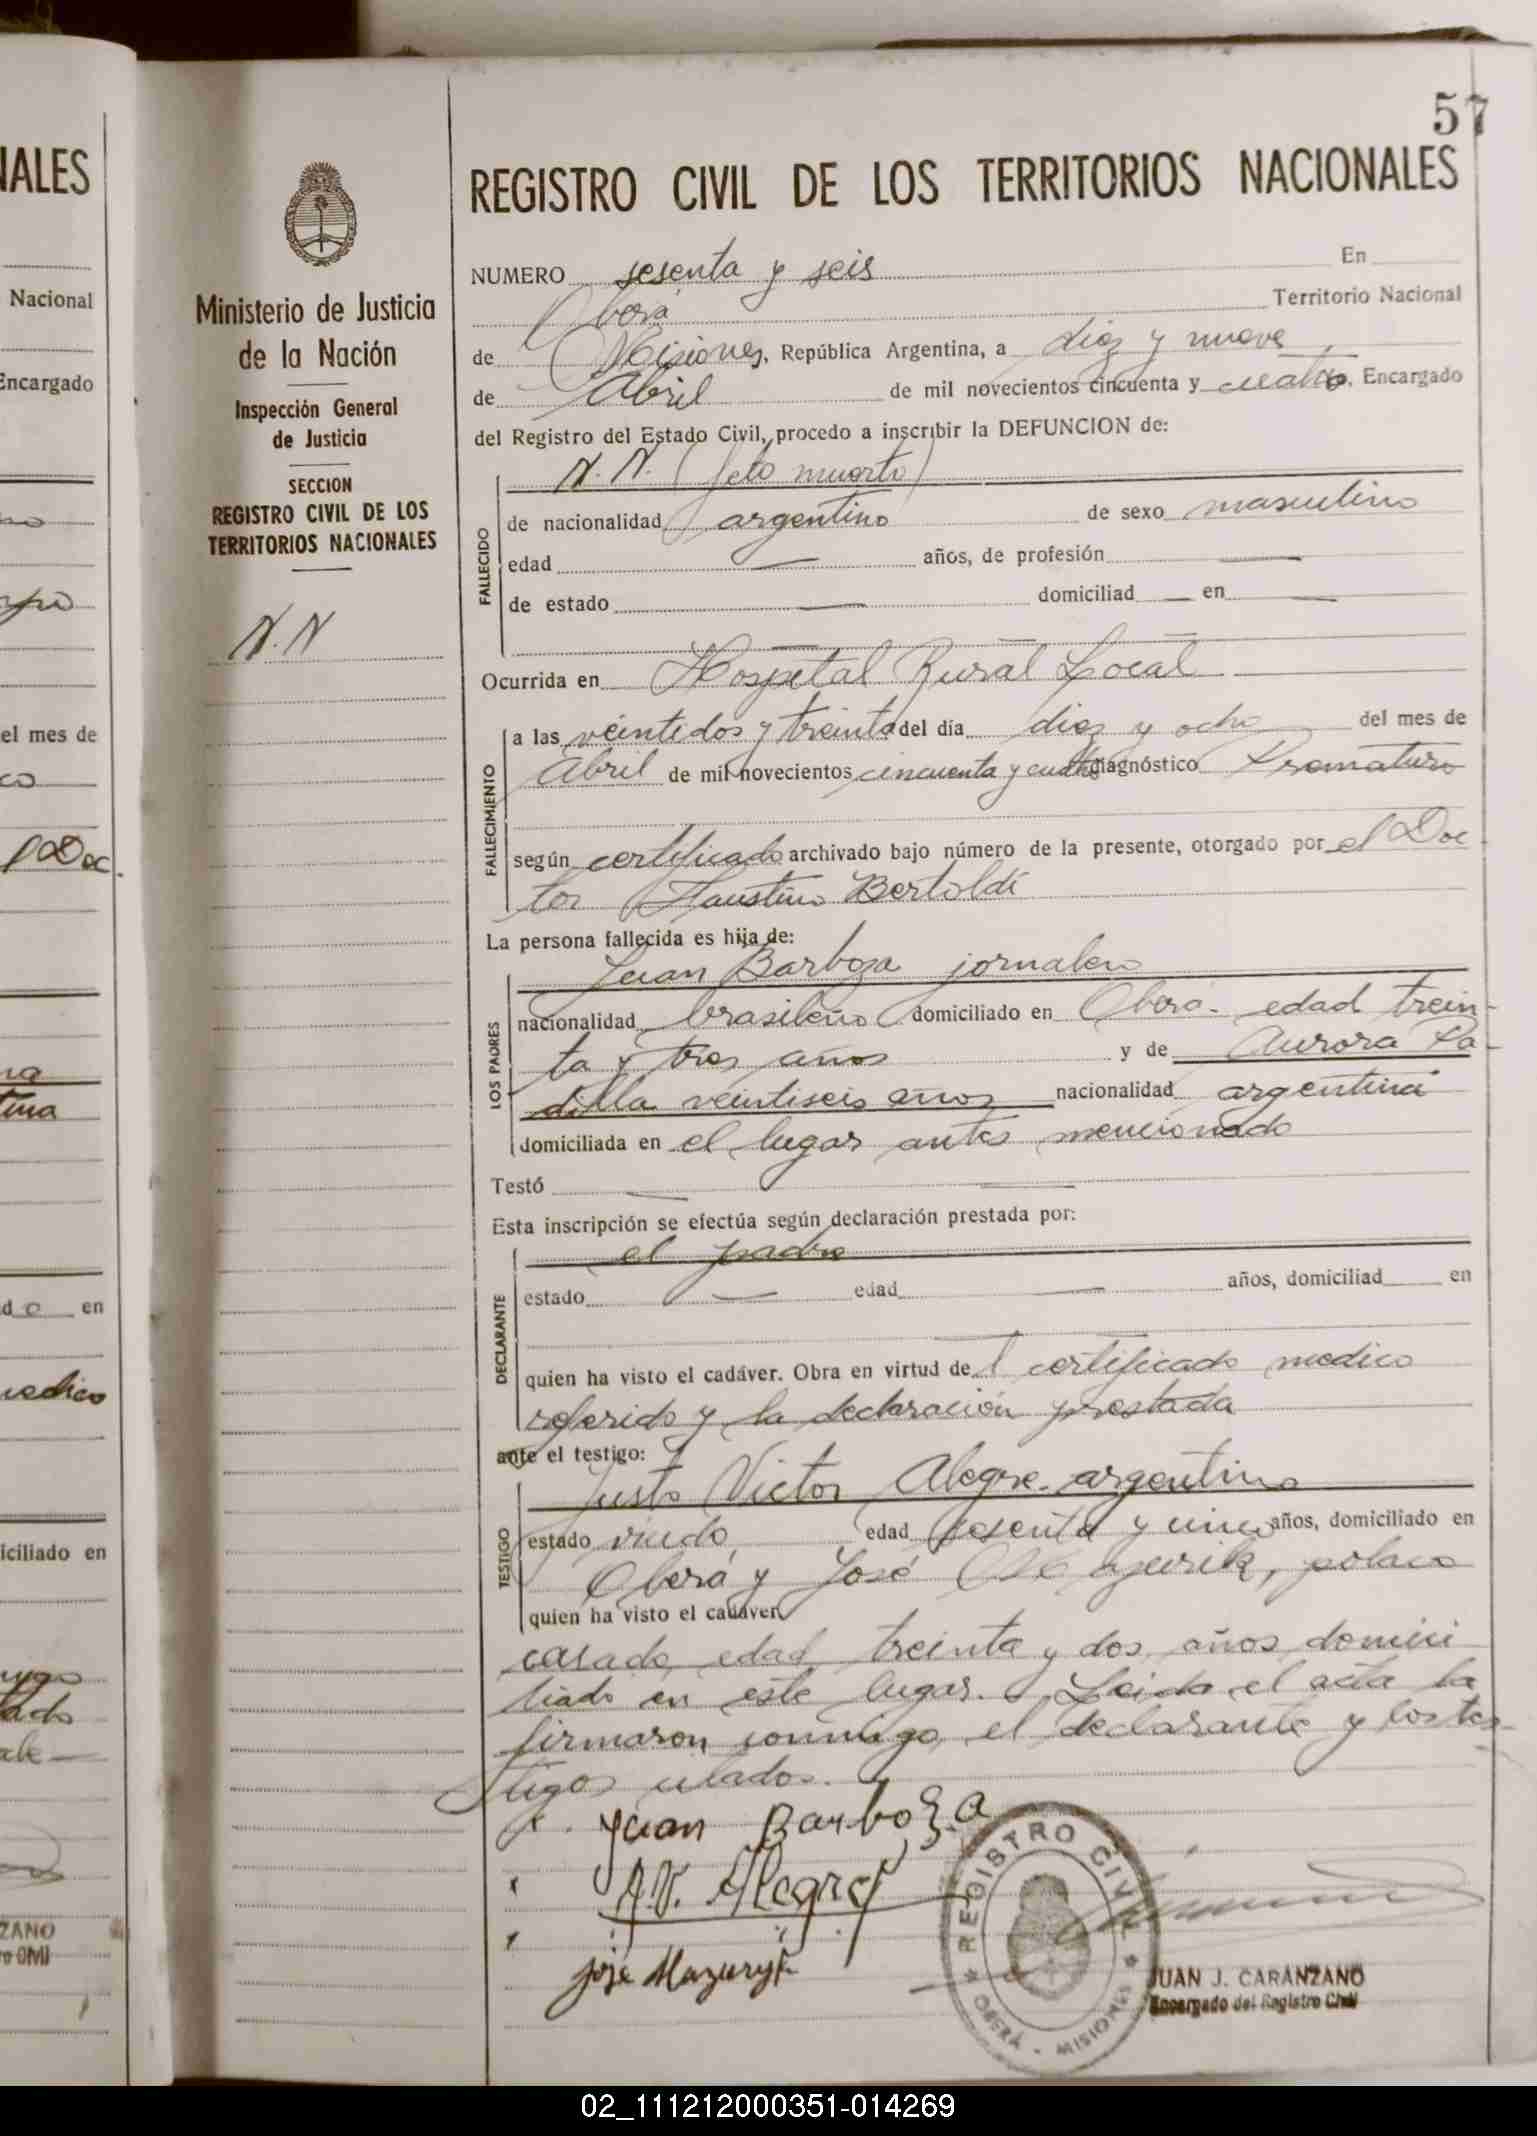 57
REGISTRO CIVIL DE LOS TERRITORIOS NACIONALES
NUMERO sesenta y seis En
Oberá Territorio Nacional
de Misiones, República Argentina, a diez y nueve
de Abril de mil novecientos cincuenta y cuatro, Encargado
del Registro del Estado Civil, procedo a inscribir la DEFUNCION de:
N. N. (feto muerto)
FALLECIDO
de nacionalidad argentino de sexo masculino
edad — años, de profesión —
de estado — domiciliad — en —
Ocurrida en Hospital Rural Local
FALLECIMIENTO
a las veintidos y treinta del día diez y ocho del mes de
Abril de mil novecientos cincuenta y cuatro diagnóstico Prematuro
según certificado archivado bajo número de la presente, otorgado por el Doc
tor Faustino Bertoldi
La persona fallecida es hija de:
Juan Barboza jornalero
LOS PADRES
nacionalidad brasileño domiciliado en Oberá- edad trein-
ta y tres años y de Aurora Pa-
dilla veintiseis años nacionalidad argentina
domiciliada en el lugar antes mencionado
Testó —
Esta inscripción se efectúa según declaración prestada por:
el padre
DECLARANTE
estado — edad — años, domiciliad en
quien ha visto el cadáver. Obra en virtud de l certificado medico
referido y la declaración prestada
ante el testigo:
Justo Victor Alegre-argentino
TESTIGO
estado viudo, edad sesenta y uno años, domiciliado en
Oberá y José Mazurik, polaco
quien ha visto el cadáver
casado, edad treinta y dos años, domici
liado en este lugar. Leida el acta la
firmaron conmigo, el declarante y los tes-
tigos citados.
Juan Barboza
Alegre
José Mazuryk
REGISTRO CIVIL
OBERÁ - MISIONES
JUAN J. CARANZANO
Encargado del Registro Civil
Ministerio de Justicia
de la Nación
Inspección General
de Justicia
SECCION
REGISTRO CIVIL DE LOS
TERRITORIOS NACIONALES
N.N
NALES
Nacional
Encargado
el mes de
l Doc
tina
do en
medico
iciliado en
ZANO
02_111212000351-014269